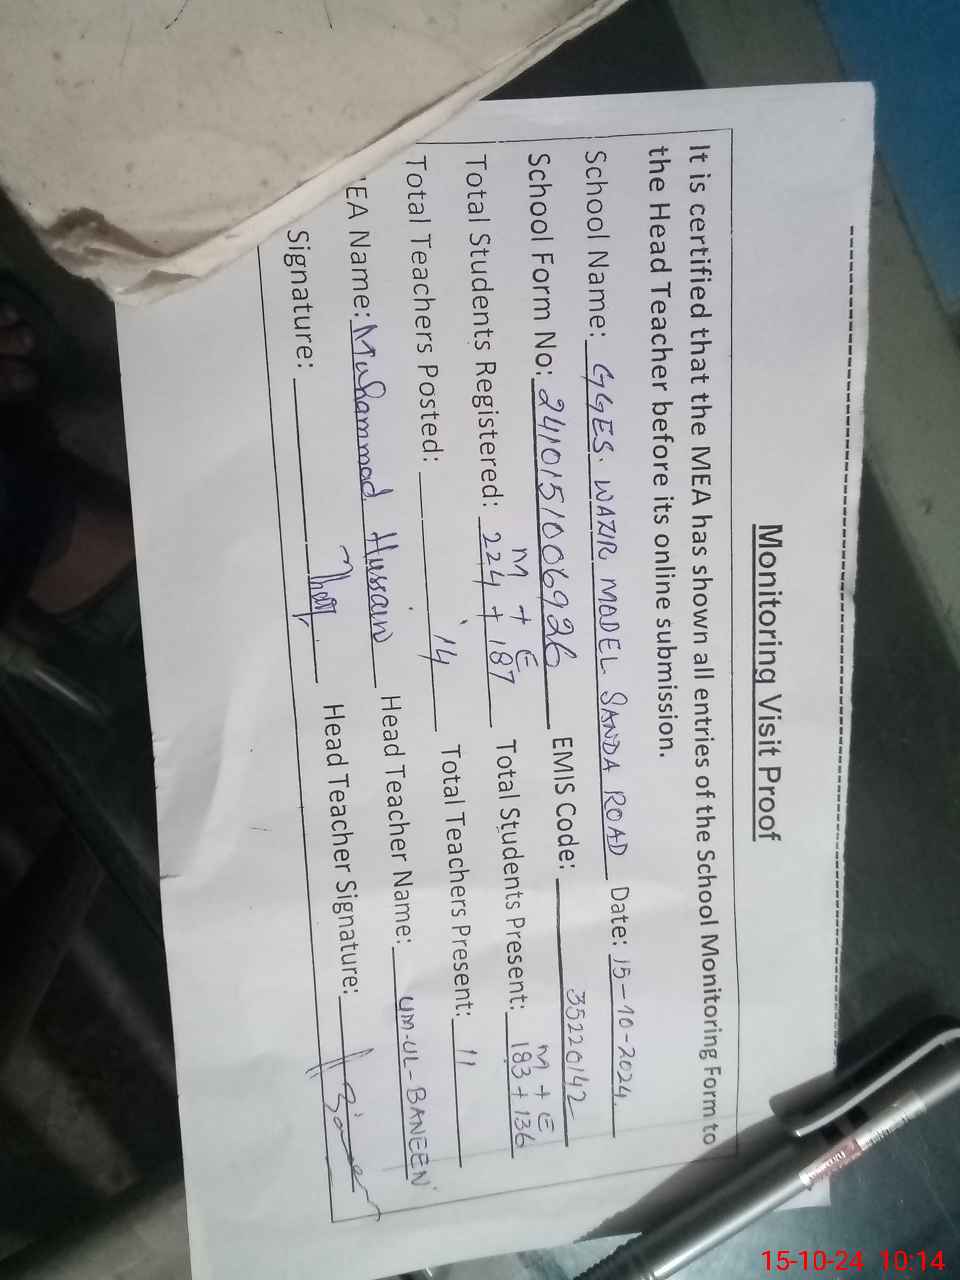 Monitoring Visit Proof
It is certified that the MEA has shown all entries of the School Monitoring Form to
the Head Teacher before its online submission.
School Name: GGES. WAZIR MODEL SANDA ROAD Date: 15-10-2024.
School Form No: 2410151006926 EMIS Code: 35220142
M + E M + E
Total Students Registered: 224 + 187 Total Students Present: 183 + 136
Total Teachers Posted: 14 Total Teachers Present: 11
EA Name: Muhammad Hussain Head Teacher Name: UM-UL-BANEEN
Signature: Head Teacher Signature:
15-10-24 10:14